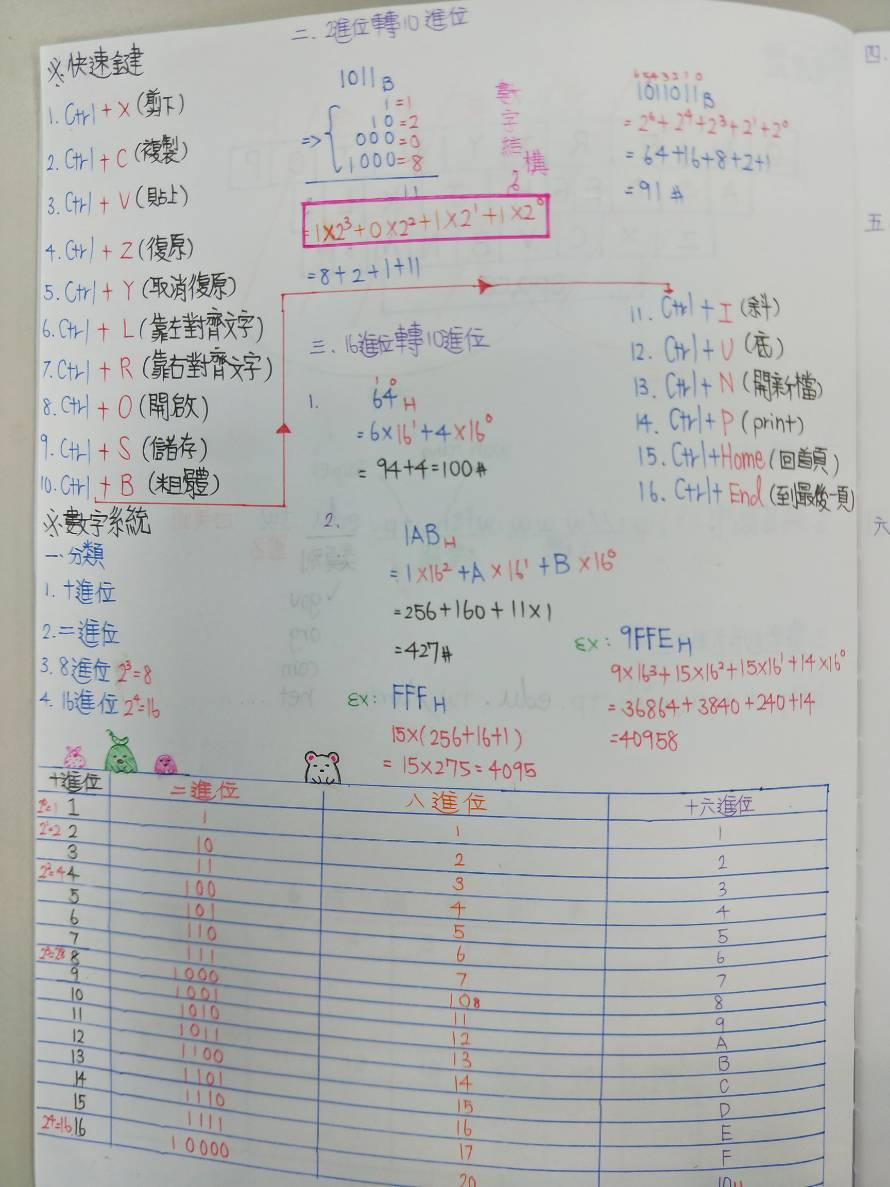 ※快速鍵
1. Ctrl + X (剪下)
2. Ctrl + C (複製)
3. Ctrl + V (貼上)
4. Ctrl + Z (復原)
5. Ctrl + Y (取消復原)
6. Ctrl + L (靠左對齊文字)
7. Ctrl + R (靠右對齊文字)
8. Ctrl + O (開啟)
9. Ctrl + S (儲存)
10. Ctrl + B (粗體)
11. Ctrl + I (斜)
12. Ctrl + U (底)
13. Ctrl + N (開新檔)
14. Ctrl + P (print)
15. Ctrl + Home (回首頁)
16. Ctrl + End (到最後一頁)
※數字系統
一、分類
1. 十進位
2. 二進位
3. 8進位 2³=8
4. 16進位 2⁴=16
二. 2進位轉10進位
1011B
1=1
10=2
=> 000=0
1000=8
11
數字結構
=1×2³+0×2²+1×2¹+1×2⁰
=8+2+1+11
6 5 4 3 2 1 0
1011011B
=2⁶+2⁴+2³+2¹+2⁰
=64+16+8+2+1
=91#
三. 16進位轉10進位
1.
1 0
64H
=6×16¹+4×16⁰
=94+4=100#
2.
1ABH
=1×16²+A×16¹+B×16⁰
=256+160+11×1
=427#
EX: FFFH
15×(256+16+1)
=15×275=4095
EX: 9FFEH
9×16³+15×16²+15×16¹+14×16⁰
=36864+3840+240+14
=40958
十進位 二進位 八進位 十六進位
2⁰=1 1 1 1 1
2¹=2 2 10 2 2
3 11 3 3
2²=4 4 100 4 4
5 101 5 5
6 110 6 6
7 111 7 7
8 1000 10 8 8
9 1001 11 9
10 1010 12 A
11 1011 13 B
12 1100 14 C
13 1101 15 D
14 1110 16 E
15 1111 17 F
2⁴=16 16 10000 20
四.
五
六